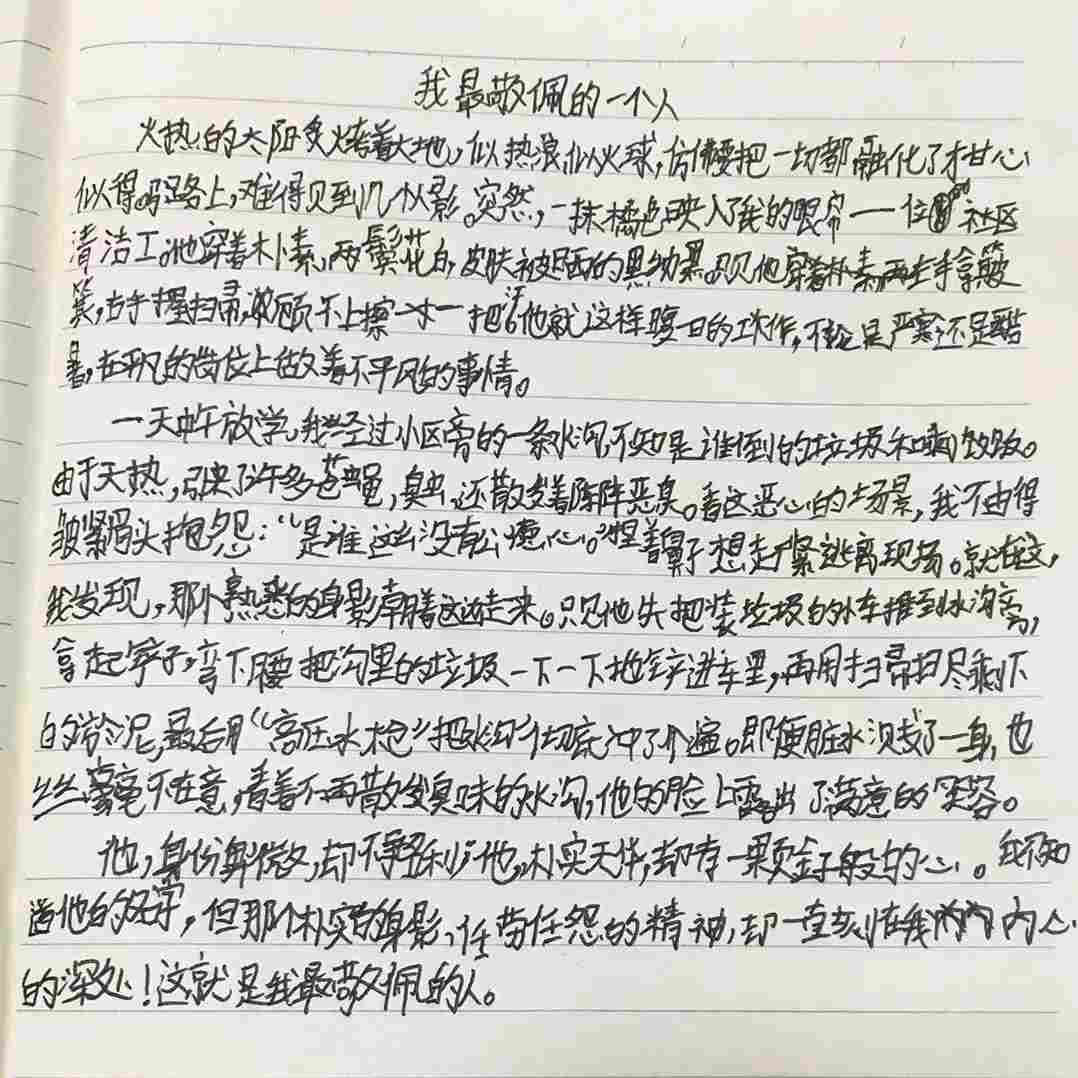 我最敬佩的一个人
火热的太阳炙烤着大地,似热浪似火球,仿佛要把一切都融化了才甘心
似得。马路上,难得见到几个人影。突然,一抹橘色映入了我的眼帘——一位社区
清洁工。他穿着朴素,两鬓花白,皮肤被晒的黑黝黑。只见他穿着朴素两左手拿簸
箕,右手握扫帚,都顾不上擦一把汗。他就这样日的工作,不论是严寒还是酷
暑,在平凡的岗位上做着不平凡的事情。
一天中午放学,我经过小区旁的一条水沟,不知是谁倒的垃圾和剩饭。
由于天热,引来了许多苍蝇,臭虫,还散发着阵阵恶臭。看这恶心的场景,我不由得
皱紧眉头抱怨:“是谁这么没有公德心。”捏着鼻子想赶紧逃离现场。就在这,
我发现,那个熟悉的身影朝着这边走来。只见他先把装垃圾的小车推到水沟旁,
拿起铲子,弯下腰把沟里的垃圾一下一下地铲进车里,再用扫帚扫尽剩下
的淤泥,最后用“高压水枪”把水沟彻底冲了个遍。即便脏水溅了一身,也
丝毫不在意,看着不再散发臭味的水沟,他的脸上露出了满意的笑容。
他,身份卑微,却不争名利;他,朴实无华,却有一颗金子般的心。我不知
道他的名字,但那个朴实的身影,任劳任怨的精神,却一直刻在我内心
的深处!这就是我最敬佩的人。